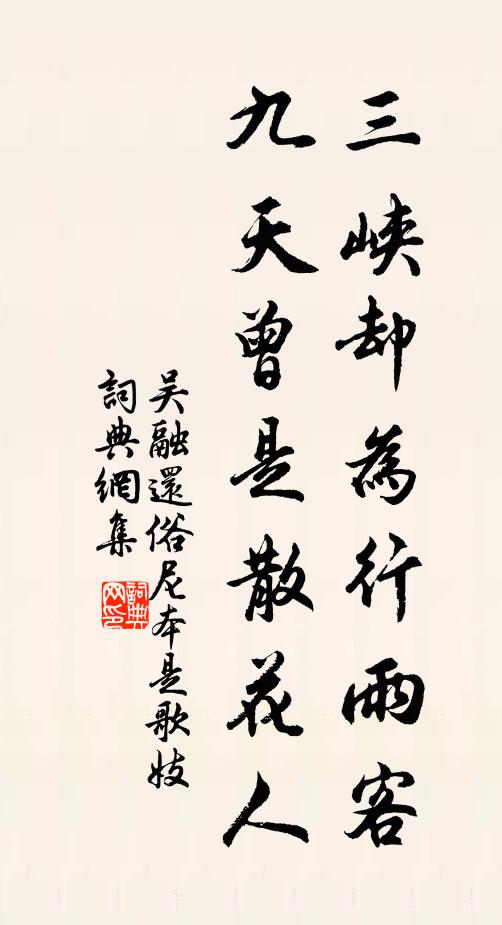 三峽却為行雨客
九天曾是散花人
吴融還俗尼本是歌妓
詞典網集
詞典
网印